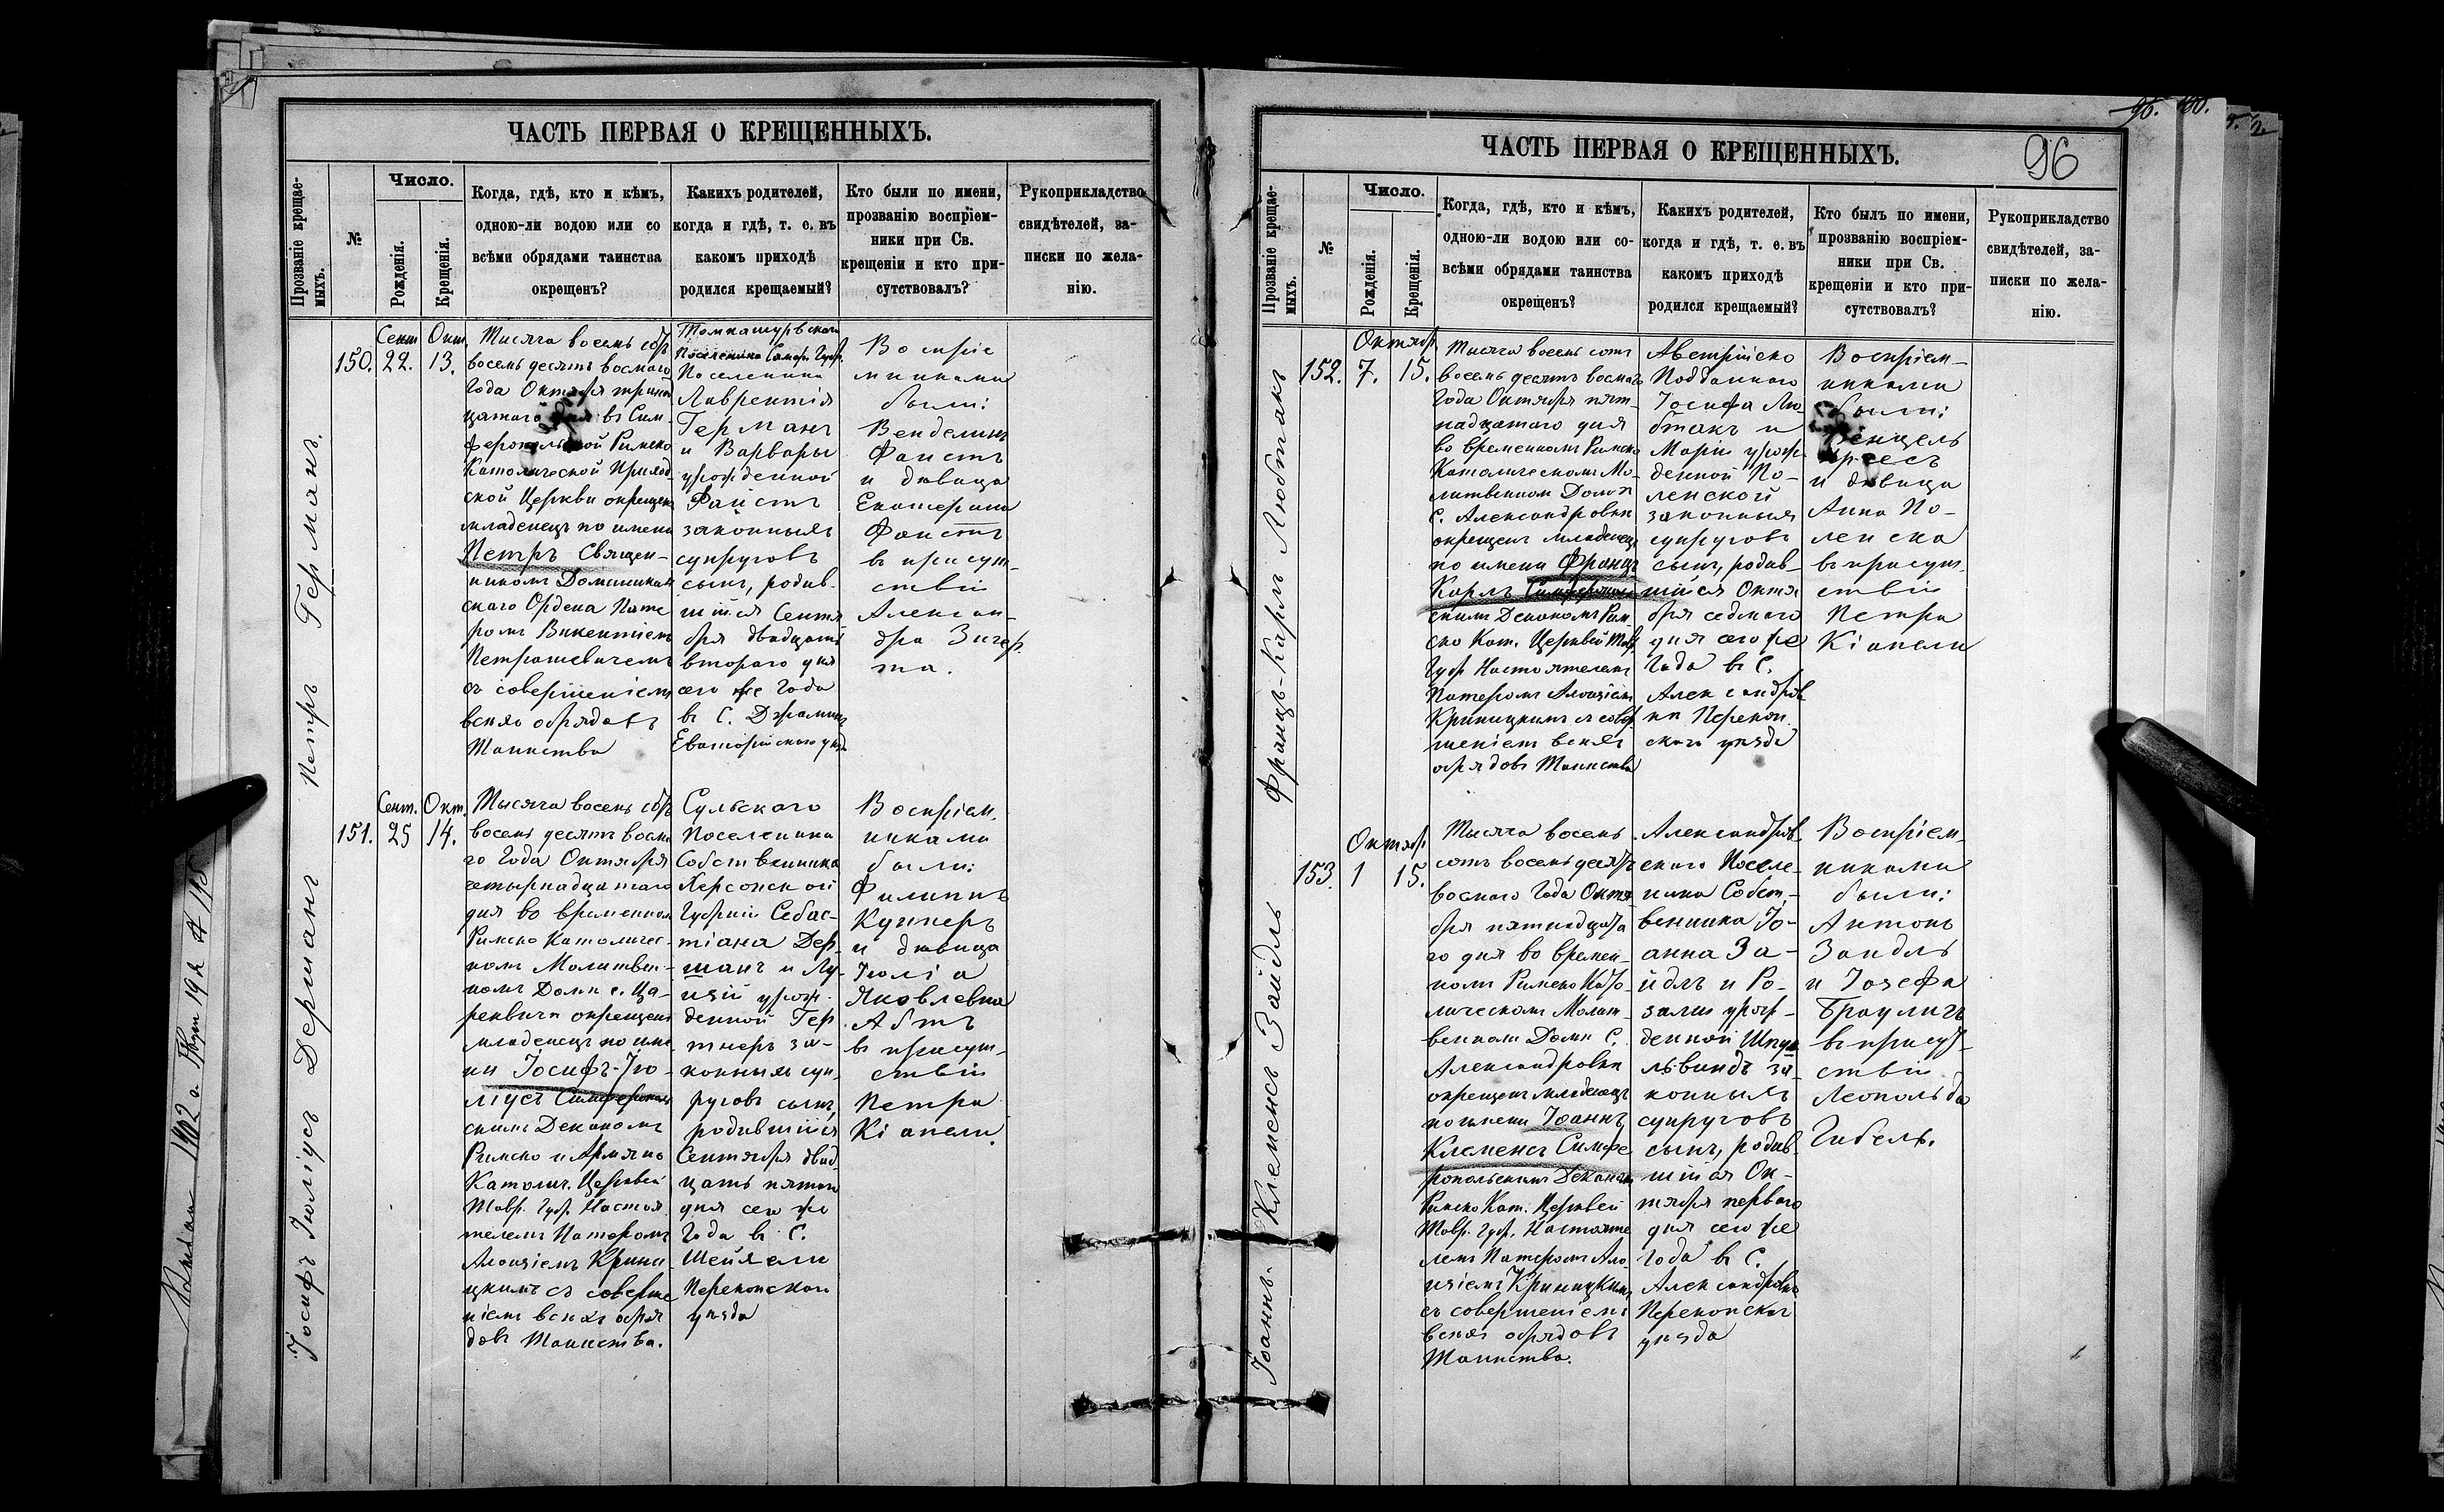 ЧАСТЬ ПЕРВАЯ О КРЕЩЕННЫХЪ.
Прозваніе крещае-
мыхъ.
№
Число.
Рожденія.
Крещенія.
Когда, гдѣ, кто и кѣмъ,
одною-ли водою или со
всѣми обрядами таинства
окрещенъ?
Какихъ родителей,
когда и гдѣ, т. е. въ
какомъ приходѣ
родился крещаемый?
Кто были по имени,
прозванію воспріем-
ники при Св.
крещеніи и кто при-
сутствовалъ?
Рукоприкладство
свидѣтелей, за-
писки по жела-
нію.
Петръ Германъ.
150.
Сент
22.
Окт.
13.
Тысяча восемь сотъ
восемь десятъ восмаго
Года Октября трина
цатаго дня въ Сим-
феропольской Римско
Католической Приход-
ской Церкви окрещенъ
младенецъ по имени
Петръ Священ-
никомъ Доминикан
скаго Ордена Пате
ромъ Викентіемъ
Петрашевичемъ
съ совершеніемъ
всѣхъ обрядовъ
Таинства
Поселенина
Лаврентія
Германъ
и Варвары
урожденной
Фаистъ
законныхъ
супруговъ
сынъ, родив-
шійся Сентя
бря двадцать
втораго дня
сего же Года
въ С.
Евпаторійскаго уѣзда
Воспріе
мниками
были:
Венделинъ
Фаистъ
и дѣвица
Екатерина
Фаистъ
въ присут-
ствіи
Алексан-
дра Зигер
та.
Іосифъ Юліусъ Дершанъ
151.
Сент.
25
Окт.
14.
Тысяча восемь сотъ
восемь десятъ восма
го Года Октября
четырнадцатаго
дня во временномъ
Римско Католичес-
комъ Молитвен-
номъ Домѣ с. Ца-
реквичъ окрещенъ
младенецъ по име
ни Іосифъ-Ю-
ліусъ Симферополь
скимъ Деканомъ
Римско и Армяно
Католич. Церквей
Тавр. Губ. Настоя
телемъ Патеромъ
Алоизіемъ Крини
цкимъ съ соверше
ніемъ всѣхъ обря
довъ Таинства.
Сульскаго
Поселенина
Собственника
Херсонской
Губерніи Себас-
тіана Дер-
шанъ и Лу-
изіи урож-
денной Гер
тнеръ за-
конныхъ суп-
руговъ сынъ,
родившійся
Сентября двад
цать пятаго
дня сего же
Года въ С.
Шейхели
Перекопскаго
уѣзда
Воспріем,
никами
были:
Филиппъ
Куннеръ
и дѣвица
Юлія
Яковлевна
Абтъ
въ присут-
ствіи
Петра
Кіапели.
ЧАСТЬ ПЕРВАЯ О КРЕЩЕННЫХЪ.
96
Прозваніе крещае-
мыхъ.
№
Число.
Рожденія.
Крещенія.
Когда, гдѣ, кто и кѣмъ,
одною-ли водою или со-
всѣми обрядами таинства
окрещенъ?
Какихъ родителей,
когда и гдѣ, т. е. въ
какомъ приходѣ
родился крещаемый?
Кто былъ по имени,
прозванію воспріем-
ники при Св.
крещеніи и кто при-
сутствовалъ?
Рукоприкладство
свидѣтелей, за-
писки по жела-
нію.
Францъ-Карлъ Любтакъ
152.
Октяб.
7.
15.
Тысяча восемь сотъ
восемь десятъ восмаго
Года Октября пят-
надцатаго дня
во временномъ Римско
Католическомъ Мо-
литвенномъ Домѣ
С. Александровки
окрещенъ младенецъ
по имени Францъ
Карлъ Симферополь
скимъ Деканомъ Рим-
ско Кат. Церквей Тавр.
Губ Настоятелемъ
Патеромъ Алоизіемъ
Криницкимъ съ совер
шеніемъ всѣхъ
обрядовъ Таинства
Австрійско
Подданнаго
Іосифа Лю-
бтакъ и
Маріи урож-
денной По-
ленской
законныхъ
супруговъ
сынъ, родив-
шійся Октя
бря седмаго
дня сего же
Года въ С.
Александров
ки Перекоп-
скаго уѣзда
Воспріем-
никами
были:
Венцель
и дѣвица
Анна По-
ленска
въ присут-
ствіи
Петра
Кіапели
Іоаннъ-Клеменсъ Зайдль
153.
Октяб
1
15.
Тысяча восемь
сотъ восемь десятъ
восмаго Года Октя
бря пятнадцата
го дня во времен-
номъ Римско Като-
лическомъ Молит-
венномъ Домѣ С.
Александровки
окрещенъ младенецъ
по имени Іоаннъ
Клеменсъ Симфе
ропольскимъ Деканомъ
Римско Кат. Церквей
Тавр. Губ. Настояте
лемъ Патеромъ Ало-
изіемъ Криницкимъ,
съ совершеніемъ
всѣхъ обрядовъ
Таинства.
Александров-
скаго Поселе-
нина Собст-
венника Іо-
анна За-
йдль и Ро-
заліи урож-
денной
за-
конныхъ
супруговъ
сынъ, родив-
шійся Ок-
тября перваго
дня сего же
года въ С.
Александровка
Перекопскаго
уѣзда
Воспріем-
никами
были:
Антонъ
Заидль
и Іозефа
Браулигъ
въ присут-
ствіи
Леопольда
Гибель.